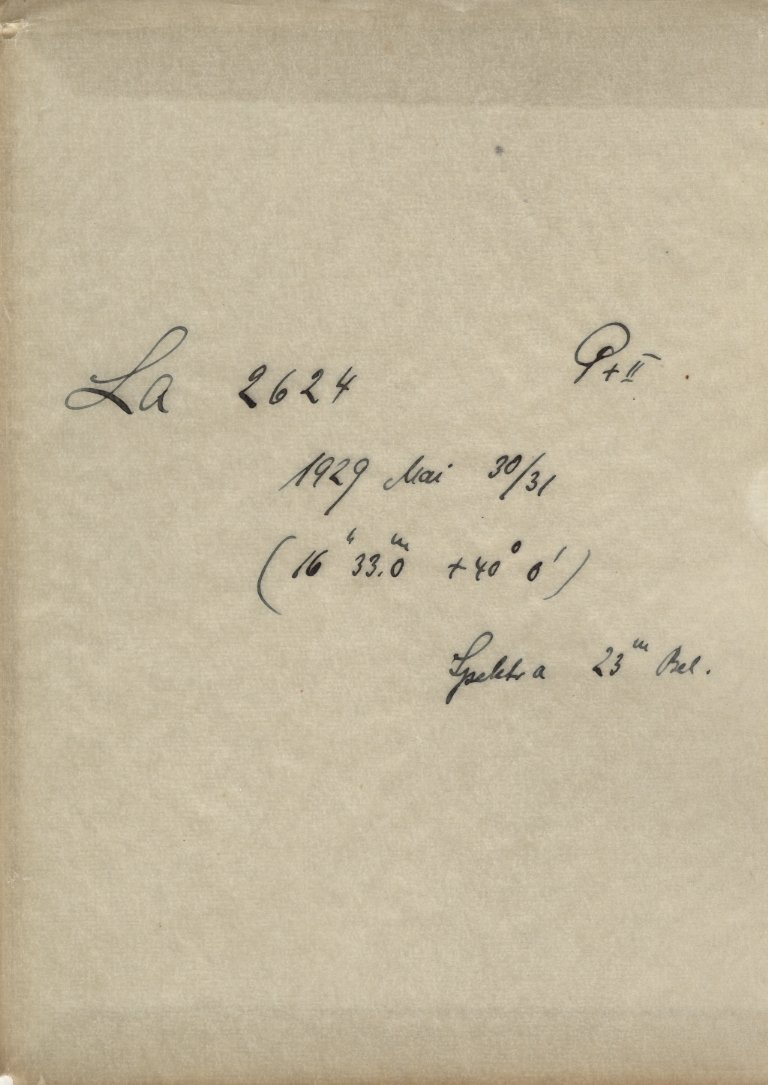 La 2624 P+II
1929 Mai 30/31
(16ʰ 33.0ᵐ +40° 0')
Spektra 23ᵐ Bel.